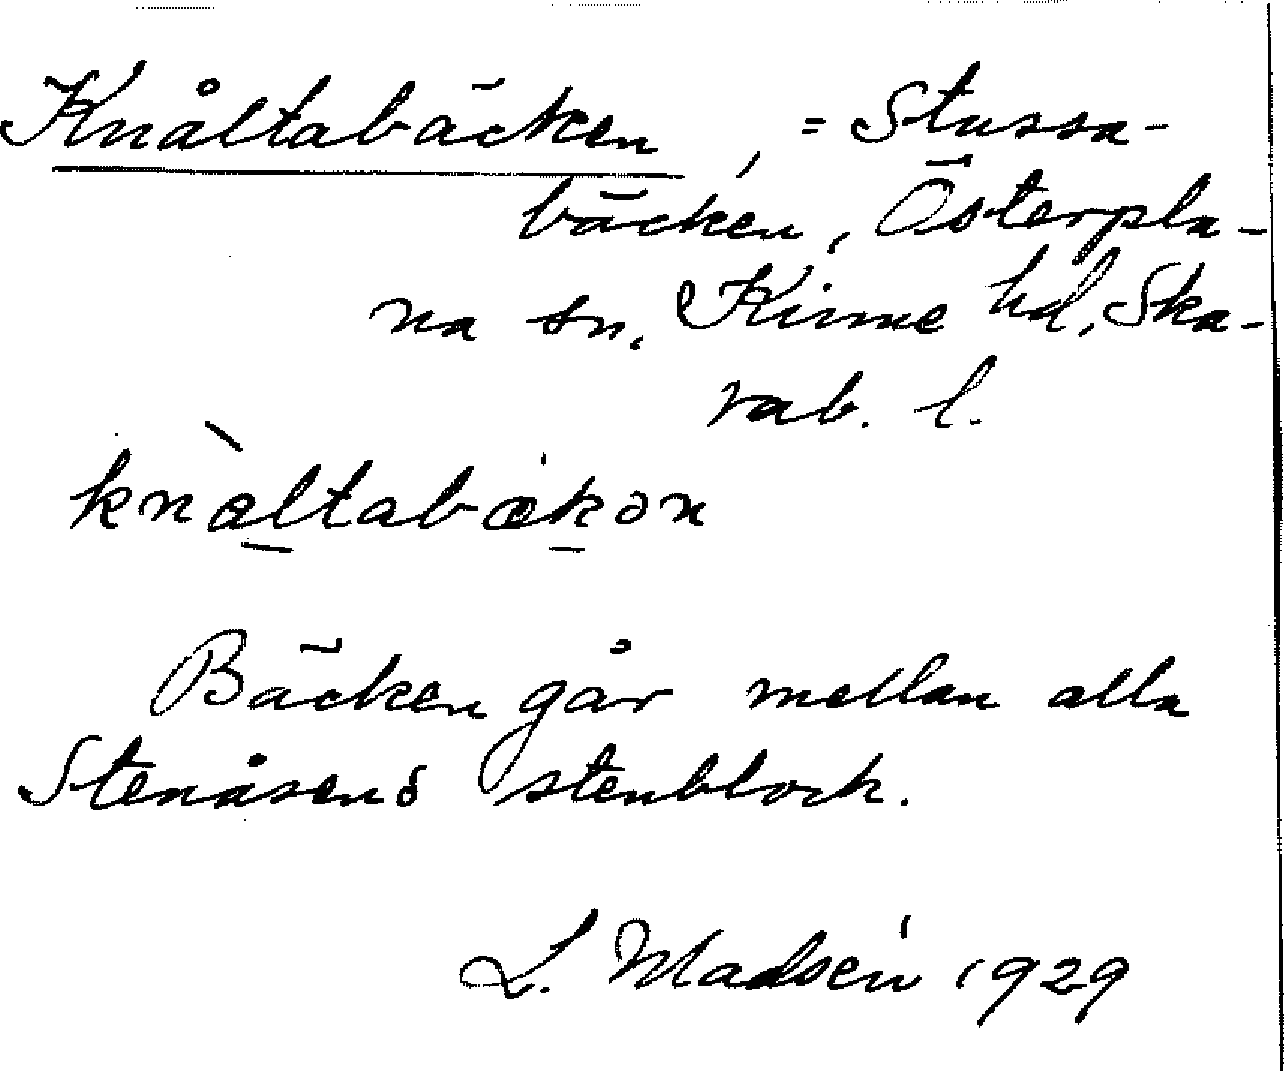 Knåltabäcken, = Stussa-
bäcken, Österpla-
na sn, Kinne hd, Ska-
rab. l.
knàltabækən
Bäcken går mellan alla
Stenåsens stenblock.
L. Madsén 1929